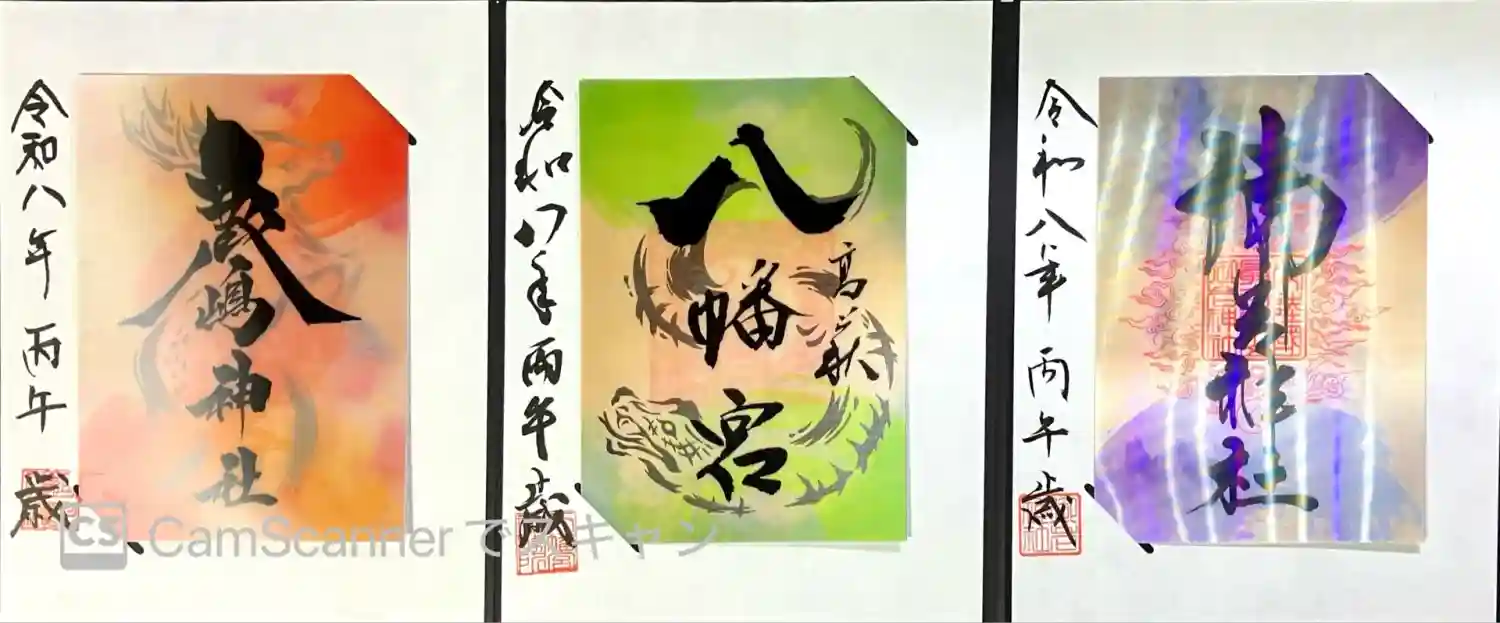 令和八年 丙午 歳
嚴嶋神社
令和八年 丙午 歳
八幡宮
高萩
令和八年 丙午 歳
神社
CS CamScanner でスキャン